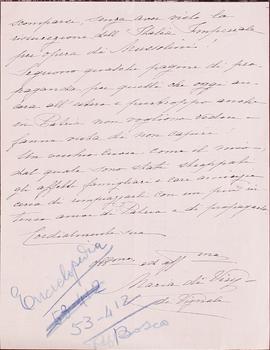 scomparse, senza aver visto la
rinascenza dell'Italia Imperiale
per opera di Mussolini!
Seguono qualche pagine di pro-
paganda per quelli che oggi an-
cora all'estero e purtroppo anche
in Patria non vogliono vedere e
fanno vista di non capire!
Un vecchio cuore come il mio
dal quale sono stati strappati
gli affetti famigliari e cari
cerca di con un più in-
tenso amor di Patria e di propaganda
Cordialmente sua
ed aff ma
Maria di
di
Enciclopedia
53-412
53-412
Bosco